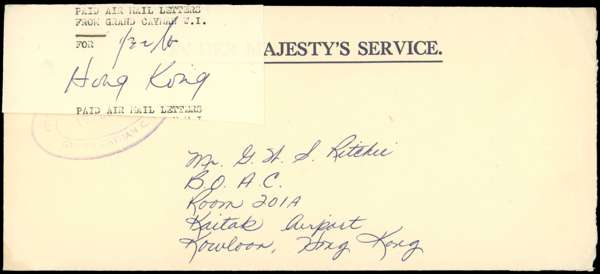 PAID AIR MAIL LETTERS
FROM GRAND CAYMAN W.I.
FOR
Hong Kong
PAID AIR MAIL LETTERS
HER MAJESTY'S SERVICE.
Mr. G. W. S. Ritchie
B.O.A.C.
Room 201A
Kaitak Airport
Kowloon, Hong Kong